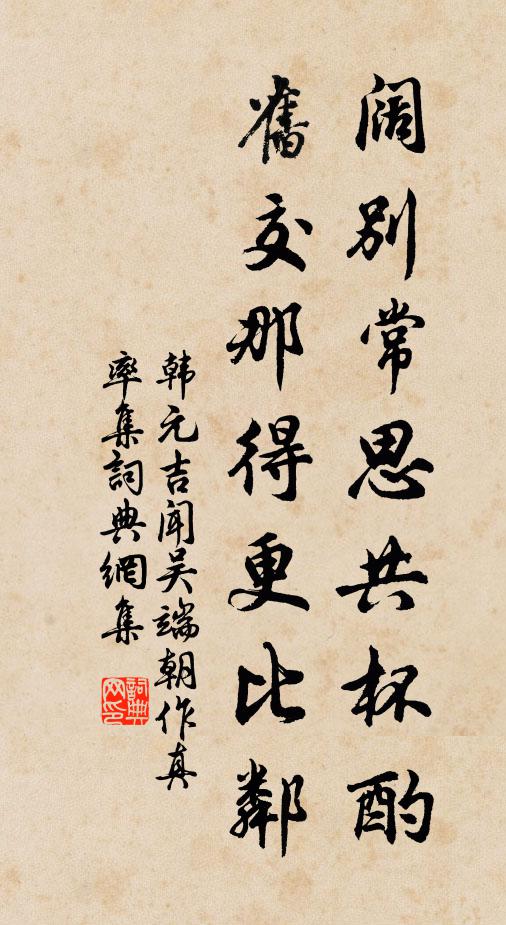 阔别常思共杯酌
舊交那得更比鄰
韩元吉闻吴端朝作真
率集詞典網集
詞典
网印